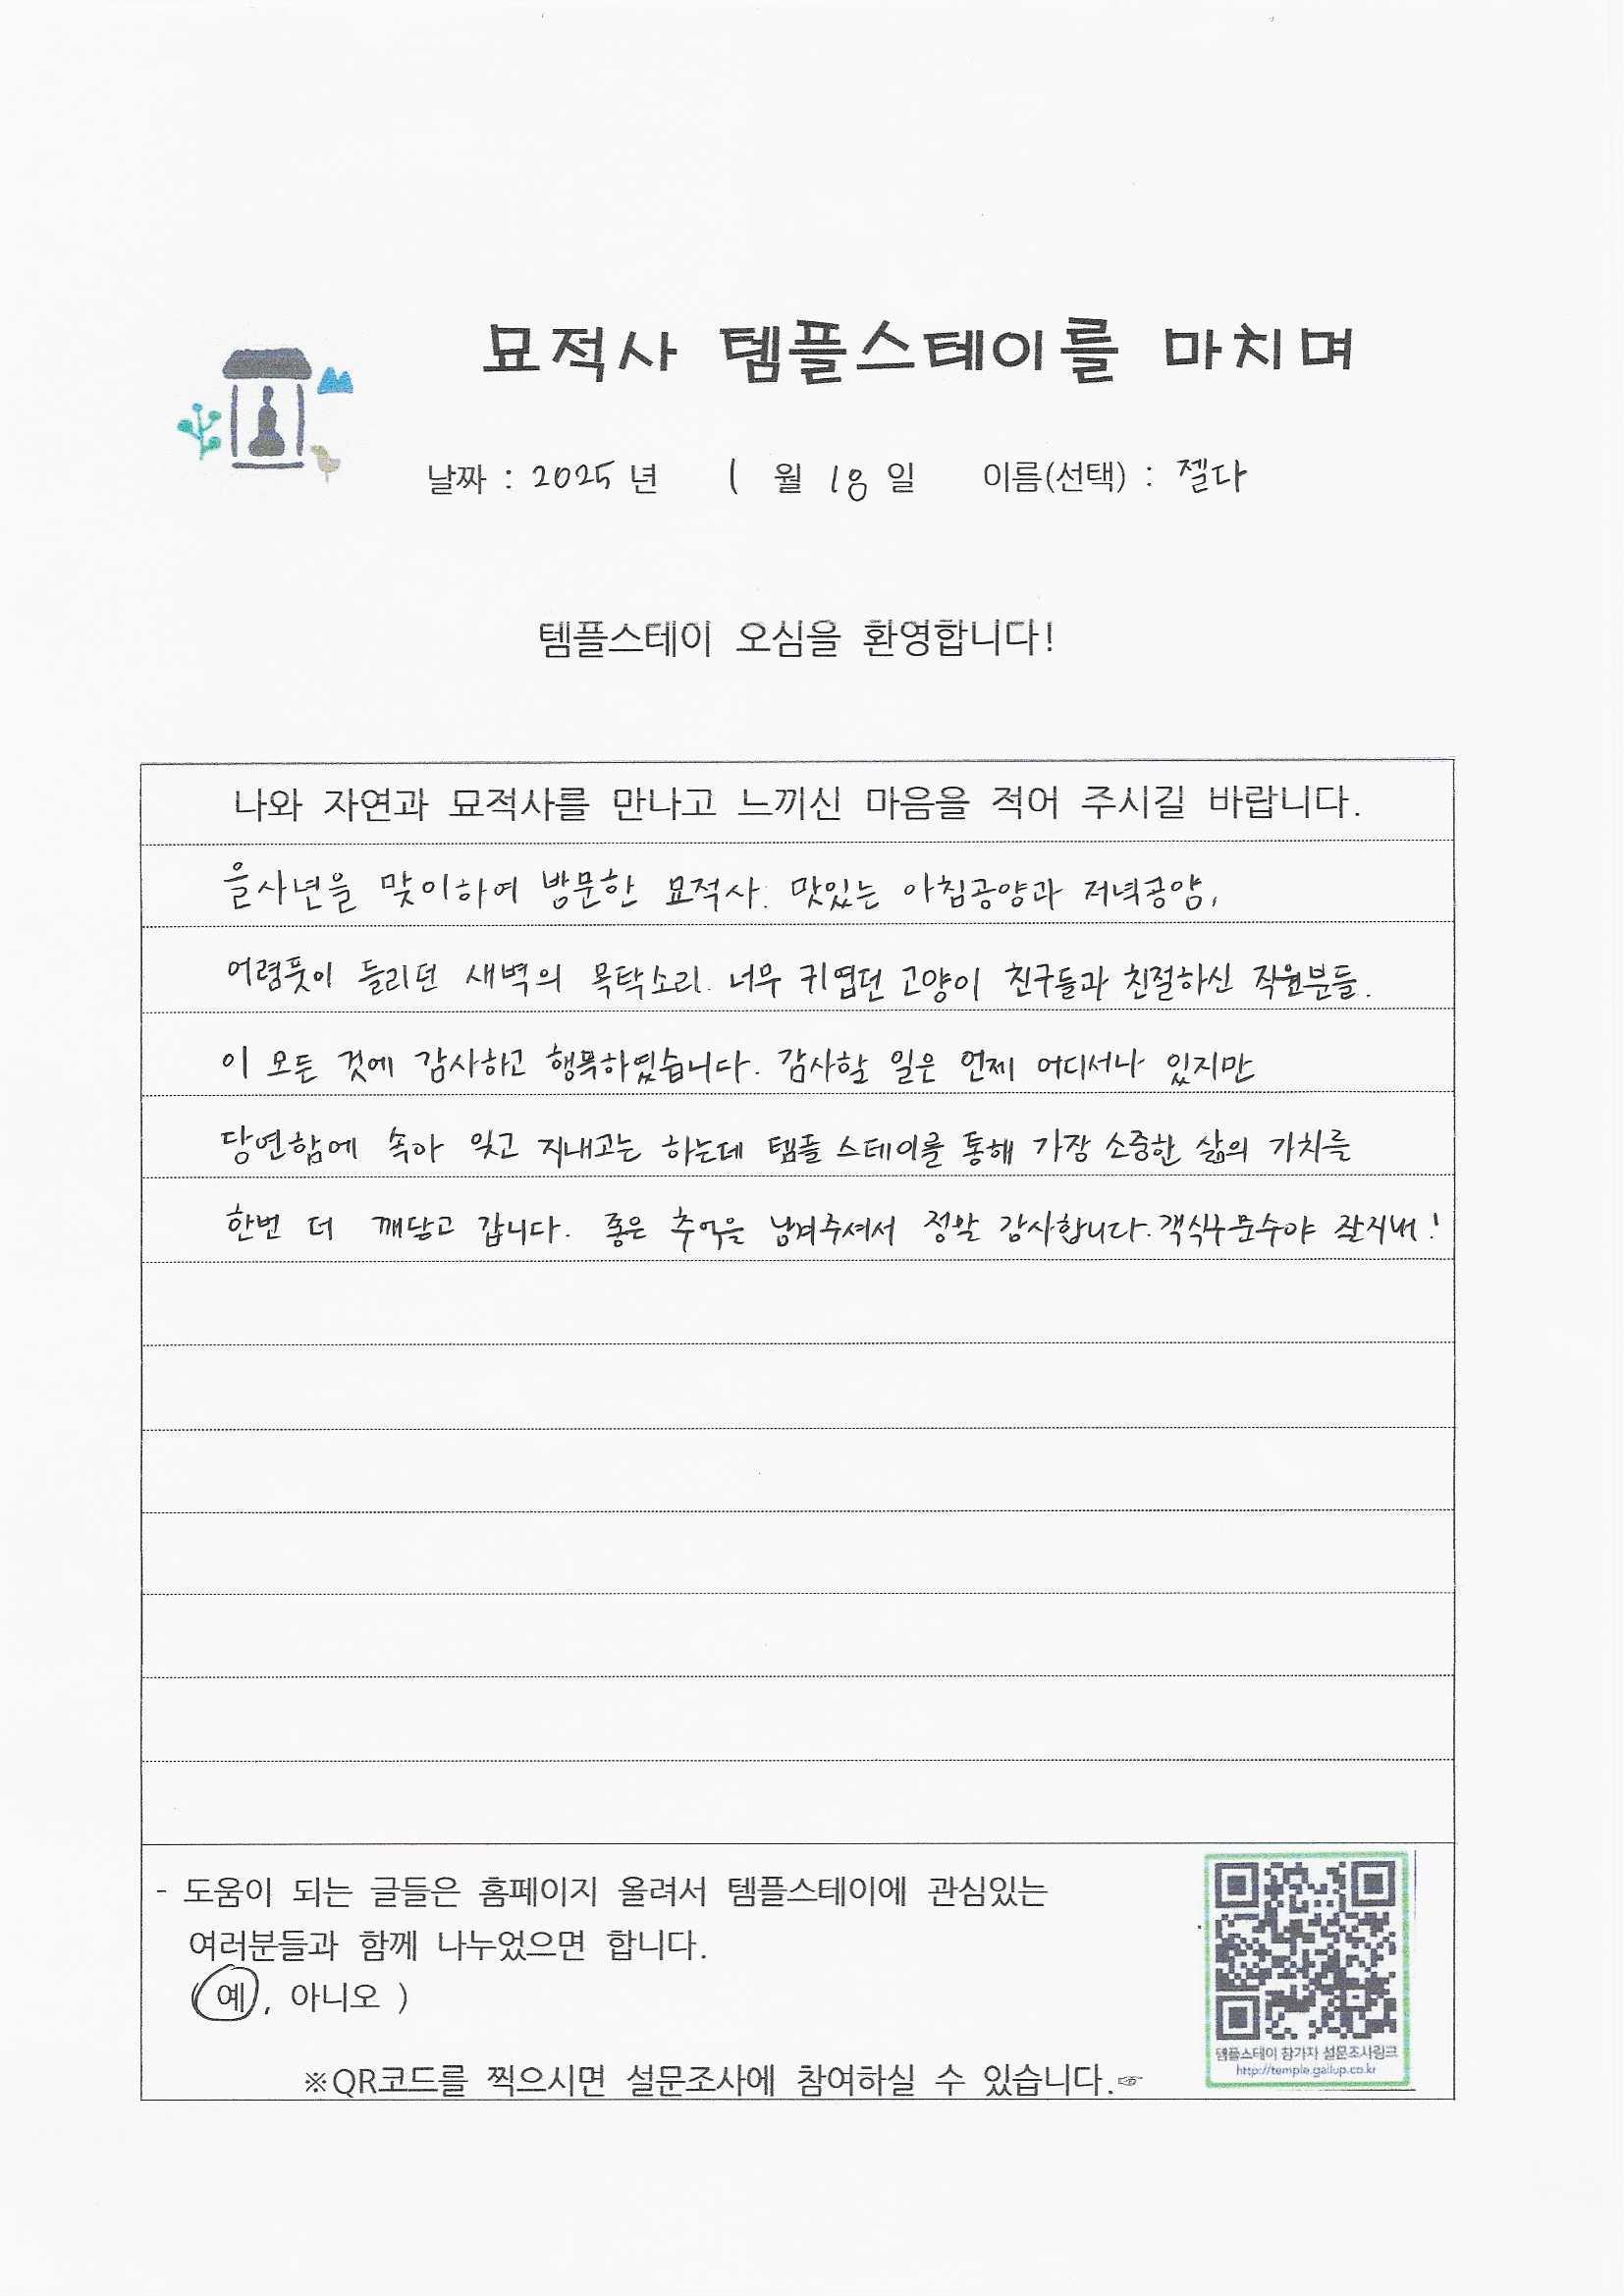 묘적사 템플스테이를 마치며
날짜 : 2025 년 1 월 18 일 이름(선택) : 젤다
템플스테이 오심을 환영합니다!
나와 자연과 묘적사를 만나고 느끼신 마음을 적어 주시길 바랍니다.
을사년을 맞이하여 방문한 묘적사. 맛있는 아침공양과 저녁공양,
어렴풋이 들리던 새벽의 목탁소리. 너무 귀엽던 고양이 친구들과 친절하신 직원분들.
이 모든 것에 감사하고 행복하였습니다. 감사할 일은 언제 어디서나 있지만
당연함에 속아 잊고 지내고는 하는데 템플 스테이를 통해 가장 소중한 삶의 가치를
한번 더 깨닫고 갑니다. 좋은 추억을 남겨주셔서 정말 감사합니다. 객식구 문수야 잘지내!
- 도움이 되는 글들은 홈페이지 올려서 템플스테이에 관심있는
여러분들과 함께 나누었으면 합니다.
( 예 , 아니오 )
템플스테이 참가자 설문조사링크
http://temple.gallup.co.kr
※QR코드를 찍으시면 설문조사에 참여하실 수 있습니다.☞